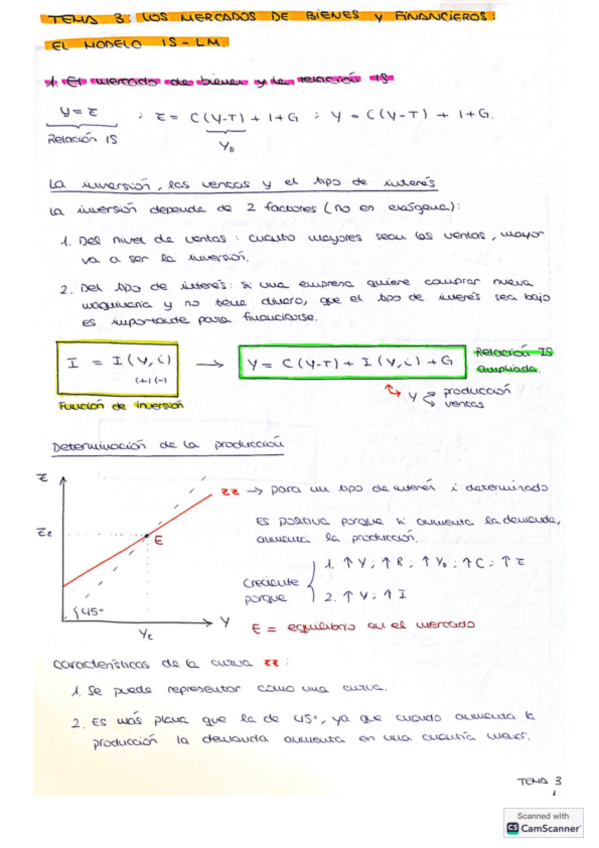 TEMA 3: LOS MERCADOS DE BIENES Y FINANCIEROS:
EL MODELO IS-LM.
1. El mercado de bienes y la relación IS
Y = Z ; Z = C(Y-T) + I + G ; Y = C(Y-T) + I + G.
Relación IS
YD
La inversión, las ventas y el tipo de interés
La inversión depende de 2 factores (no es exógena):
1. Del nivel de ventas: cuanto mayores sean las ventas, mayor
va a ser la inversión.
2. Del tipo de interés: si una empresa quiere comprar nueva
maquinaria y no tiene dinero, que el tipo de interés sea bajo
es importante para financiarse.
I = I(Y,i) → Y = C(Y-T) + I(Y,i) + G
(+)(-)
Relación IS
ampliada.
Función de inversión
Y
producción
ventas
Determinación de la producción
Z
ZZ → para un tipo de interés i determinado
Es positiva porque si aumenta la demanda,
aumenta la producción.
Creciente
porque
1. ↑Y; ↑R; ↑YD; ↑C; ↑Z
2. ↑Y; ↑I
E = equilibrio en el mercado
E
45°
Y
Características de la curva ZZ:
1. Se puede representar como una curva.
2. Es más plana que la de 45°, ya que cuando aumenta la
producción la demanda aumenta en una cuantía menor.
TEMA 3
1
Scanned with
CS CamScanner